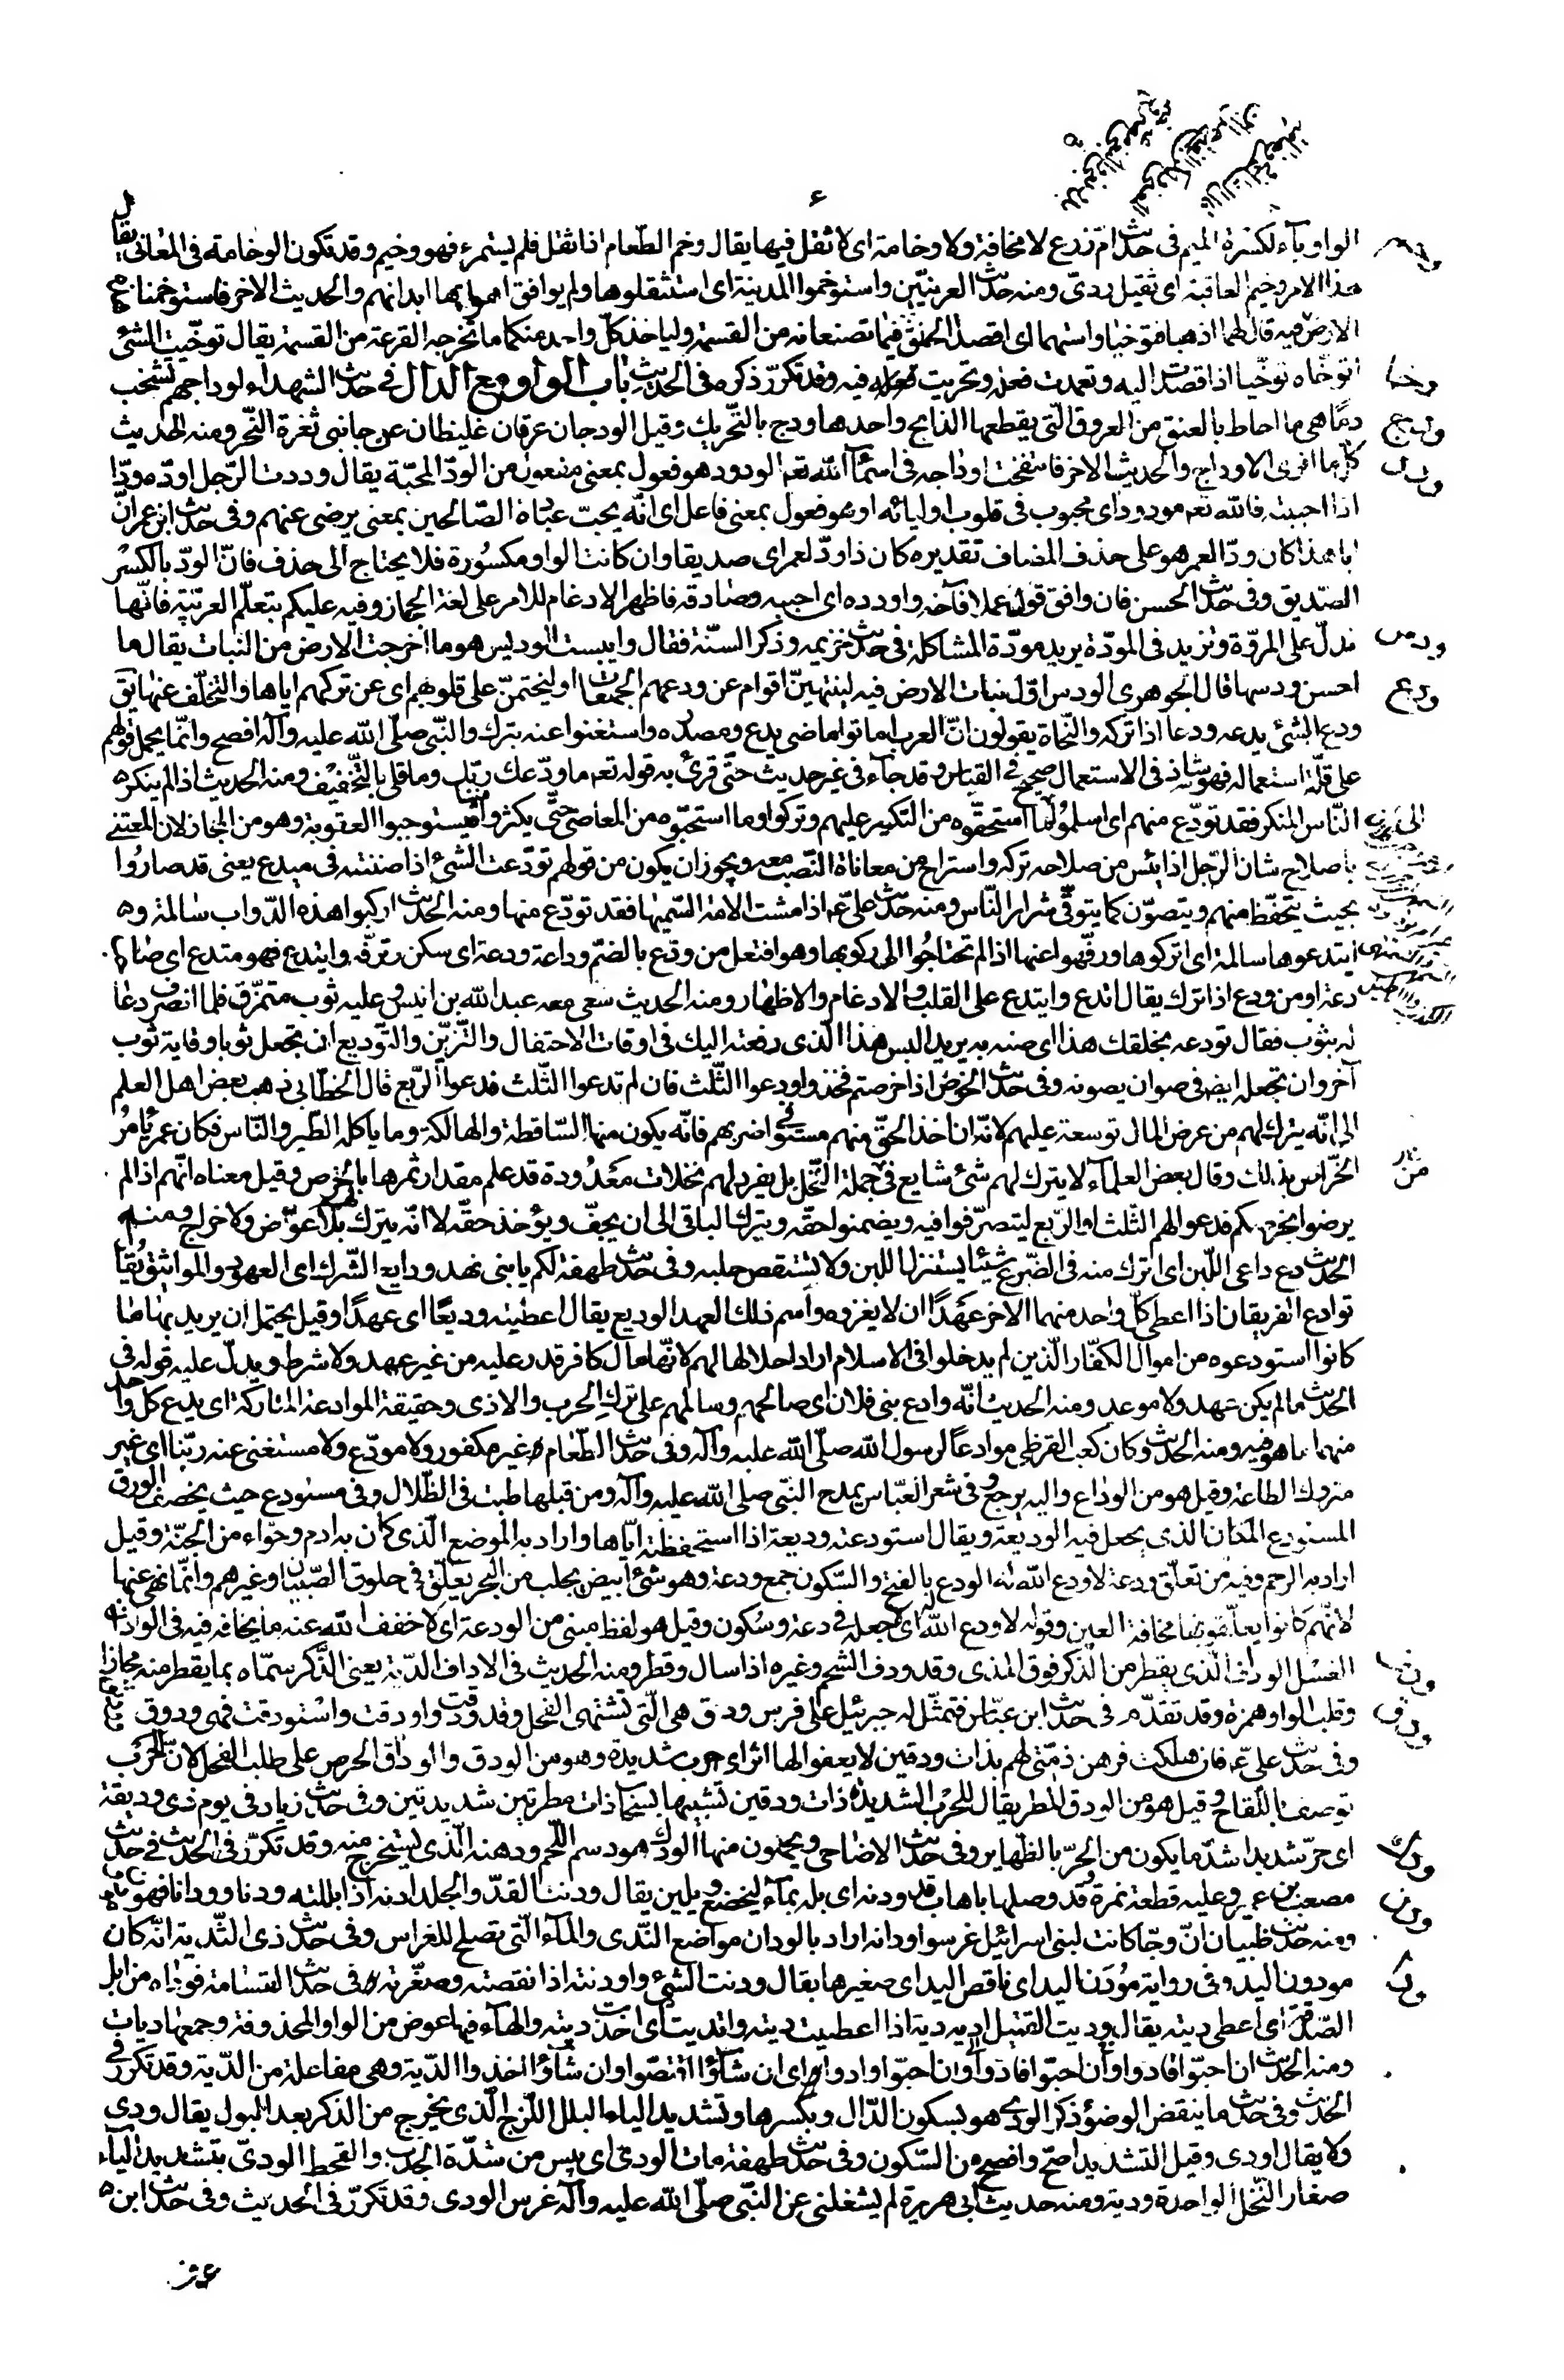 الواو ياء لكسرة الميم فى حديث ام زرع لا مخافة ولا وخامة اى لا ثقل فيها يقال وخم الطعام اذا ثقل فلم يستمرء فهو وخيم وقد تكون الوخامة فى المعانى يقال
هذا الامر وخيم العاقبة اى ثقيل ردىّ ومنه حديث العرنيّين واستوخموا المدينة اى استثقلوها ولم يوافق هواؤها ابدانهم والحديث الاخر فاستوخمنا هذه
الارض فيه قال لهما اذهبا فتوخيا واستهما اى اقصدا الحق فيما تصنعانه من القسمة وليأخذ كلّ واحد منكما ما تخرجه القرعة من القسمة يقال توخّيت الشئ
وخا
اتوخّاه توخّيا اذا قصدت اليه وتعمدت فعله وتحريت فيه وقد تكرّر ذكره فى الحديث باب الواو مع الدال فى حديث الشهداء اوداجهم تشخب
ودج
دمًا هى ما احاط بالعنق من العروق الّتى يقطعها الذابح واحدها ودج بالتّحريك وقيل الودجان عرقان غليظان عن جانبى ثغرة النّحر ومنه الحديث
ودد
كل ما افرى الاوداج والحديث الاخر فانتفخت اوداجه فى اسمآء الله تعم الودود هو فعول بمعنى مفعول من الودّ المحبّة يقال وددت الرّجل اودّه ودّا
اذا احببته فالله تعم مودود اى محبوب فى قلوب اوليائه او هو فعول بمعنى فاعل اى انّه يحبّ عباده الصّالحين بمعنى يرضى عنهم وفى حديث ابن عمر انّ
ابا هذا كان ودّا لعمر هو على حذف المضاف تقديره كان ذا ودّ لعمر اى صديقا وان كانت الواو مكسورة فلا يحتاج الى حذف فانّ الودّ بالكسر
الصّديق وفى حديث الحسن فان وافق قول عملا فآخه واودده اى احببه وصادقه فاظهر الادغام للامر على لغة الحجاز وفيه عليكم بتعلّم العربيّة فانّها
ودس
تدلّ على المروّة وتزيد فى المودّة يريد مودّة المشاكلة فى حديث خزيمه وذكر السنّة فقال وايبست الوديس هو ما اخرجت الارض من النبات يقال ما
ودع
احسن ودسها قال الجوهرى الودس اوّل نبات الارض فيه لينتهينّ اقوام عن ودعهم الجمعات او ليختمنّ على قلوبهم اى عن تركهم اياها والتخلّف عنها يق
ودع الشئ يدعه ودعا اذا تركه والنّحاة يقولون انّ العرب اماتوا ماضى يدع ومصدره واستغنوا عنه بترك والنّبى صلّى الله عليه وآله افصح وانّما يحمل قولهم
على قلّة استعماله فهو شاذ فى الاستعمال صحيح فى القياس وقد جآء فى غير حديث حتّى قرئ به قوله تعم ما ودعك ربّك وما قلى بالتّخفيف ومنه الحديث اذا لم ينكر
النّاس المنكر فقد تودّع منهم اى اسلموا الى ما استحقّوه من النّكير عليهم وتركوا وما استحبّوه من المعاصى حتّى يكثروا منها فيستوجبوا العقوبة وهو من المجاز لان المعتنى
باصلاح شان الرّجل اذا يئس من صلاحه تركه واستراح من معاناة النّصب معه ويجوز ان يكون من قولهم تودّعت الشئ اذا صنته فى ميدع يعنى قد صاروا
بحيث يتحفّظ منهم ويتصوّن كما يتوقّى شرار النّاس ومنه حديث علىّ عه اذا مشت الامة السّميها فقد تودّع منها ومنه الحديث اركبوا هذه الدّواب سالمة و
ايتدعوها سالمة اى اتركوها ورفّهوا عنها اذا لم تحتاجوا الى ركوبها وهو افتعل من ودع بالضم وداعة ودعة اى سكن وترفّه وايتدع فهو متدع اى صاحب
دعة او من ودع اذا ترك يقال اتدع وايتدع على القلب والادغام والاظهار ومنه الحديث سعى معه عبد الله بن انيس وعليه ثوب متمزّق فلما انصرف دعا
له بثوب فقال تودعه بخلقك هذا اى صنه به يريد البس هذا الّذى دفعته اليك فى اوقات الاحتفال والتّزيّن والتّوديع ان تجعل ثوبا وقاية ثوب
آخر وان تجعله ايض فى صوان يصونه وفى حديث الخرص اذا خرصتم فخذوا ودعوا الثّلث فان لم تدعوا الثّلث فدعوا الرّبع قال الخطّابى ذهب بعض اهل العلم
الى انّه يترك لهم من عرض المال توسعة عليهم لانّه ان اخذ الحقّ منهم مستوفى اضرّ بهم فانّه يكون منها السّاقطة والهالكة وما ياكله الطّير والنّاس فكان عمر يامر
الخرّاص بذلك وقال بعض العلمآء لا يترك لهم شئ شايع فى جملة النّخل بل يفرد لهم نخلات معدودة قد علم مقدار ثمرها بالخرص وقيل معناه انّهم اذا لم
يرضوا بخرصكم فدعوا لهم الثّلث او الرّبع ليتصرّفوا فيه ويضمنوا حقّه ويترك الباقى الى ان يجفّ ويؤخذ حقّه لا انّه يترك لهم بلا عوض ولا خراج ومنه
الحديث دع داعى اللّبن اى اترك منه فى الضّرع شيئا يستنزل اللبن ولا تستقص حلبه وفى حديث طهفة لكم يا بنى نهد ودايع الشّرك اى العهود والمواثيق يقا
توادع الفريقان اذا اعطى كلّ واحد منهما الاخر عهدًا ان لا يغزوه واسم ذلك العهد الوديع يقال اعطيته وديعًا اى عهدًا وقيل يحتمل ان يريد بها ما
كانوا استودعوه من اموال الكفّار الّذين لم يدخلوا فى الاسلام اراد احلالها لهم لانّها مال كافر قدر عليه من غير عهد ولا شرط ويدلّ عليه قوله فى
الحديث ما لم يكن عهد ولا موعد ومنه الحديث انّه وادع بنى فلان اى صالحهم وسالمهم على ترك الحرب والاذى وحقيقة الموادعة المتاركة اى يدع كل واحد
منهما ما هو فيه ومنه الحديث وكان كعب القرظى موادعًا لرسول الله صلّى الله عليه وآله وفى حديث الطّعام غير مكفور ولا مودّع ولا مستغنى عنه ربّنا اى غير
متروك الطاعة وقيل هو من الوداع واليه يرجع وفى شعر العبّاس يمدح النّبى صلى الله عليه وآله ومن قبلها طبت فى الظّلال وفى مستودع حيث يخصف الورق
المستودع المكان الّذى يجعل فيه الوديعة ويقال استودعته وديعة اذا استحفظته ايّاها واراد به الموضع الّذى كان به ادم وحوّاء من الجنّة وقيل
اراد به الرحم وفيه من تعلّق ودعة لا ودع الله له الودع بالفتح والسّكون جمع ودعة وهو شئ ابيض يجلب من البحر يعلّق فى حلوق الصّبيان وغيرهم وانّما نهى عنها
لانّهم كانوا يعلّقونها مخافة العين وقوله لا ودع الله له اى لا جعله فى دعة وسكون وقيل هو لفظ مبنى من الودعة اى لا خفف الله عنه ما يخافه فيه فى الوداف
الغسل الوداف الّذى يقطر من الذّكر فوق المذى وقد ودف الشحم وغيره اذا سال وقطر ومنه الحديث فى الاداف الدّية يعنى الذّكر سمّاه بما يقطر منه مجازا
ودق
وقلب الواو همزة وقد تقدّم فى حديث ابن عبّاس فتمثّل له جبرئيل على فرس ودق هى الّتى تشتهى الفحل وقد ودقت واودقت واستودقت فهى ودوق
وفى حديث علىّ عه فان هلكت فرهن ذمّتى لهم بذات ودقين لا يعفو لها اثر اى حرب شديدة وهو من الودق والوداق الحرص على طلب الفحل لانّ الحرب
توصف باللّقاح وقيل هو من الودق المطر يقال للحرب الشديدة ذات ودقين تشبيها بسحاب ذات مطرتين شديدتين وفى حديث زياد فى يوم ذى وديقة
ودك
اى حرّ شديد اشدّ ما يكون من الحرّ بالظهاير وفى حديث الاضاحى ويجملون منها الودك هو دسم اللّحم ودهنه الّذى يستخرج منه وقد تكرّر فى الحديث فى حديث
ودن
مصعب بن عمير وعليه قطعة نمرة قد وصلها باهاب قد ودنه اى بله بمآء ليخضع ويلين يقال ودنت القدّ والجلد ادنه اذا بللته ودنا وودانا فهو
ومنه حديث ظبيان انّ وجّا كانت لبنى اسرائيل غرسوا ودانه اراد بالودان مواضع النّدى والمآء الّتى تصلح للغراس وفى حديث ذى الثّدية انّه كان
مودون اليد وفى رواية مؤدن اليد اى ناقص اليد اى صغيرها يقال ودنت الشئ واودنته اذا نقصته وصغّرته فى حديث القسامة فوداه من ابل
الصّدقة اى اعطى ديته يقال وديت القتيل اديه دية اذا اعطيت ديته واتديت اى اخذت ديته والهآء فيها عوض من الواو المحذوفة وجمعها ديات
ومنه الحديث ان احبّوا قادوا وان احبّوا وادوا اى ان شآؤا اقتصّوا وان شآؤا اخذوا الدّية وهى مفاعلة من الدّية وقد تكرّر فى
الحديث وفى حديث ما ينقض الوضوء ذكر الودى هو بسكون الدّال وبكسرها وتشديد الياء البلل اللّزج الّذى يخرج من الذكر بعد البول يقال ودى
ولا يقال اودى وقيل التشديد اصحّ وافصح من السّكون وفى حديث طهفة مات الودىّ اى يبس من شدّة الجدب والقحط الودىّ بتشديد اليآء
صغار النّخل الواحدة ودية ومنه حديث ابى هريرة لم يشغلنى عن النّبى صلّى الله عليه وآله غرس الودى وقد تكرّر فى الحديث وفى حديث ابن